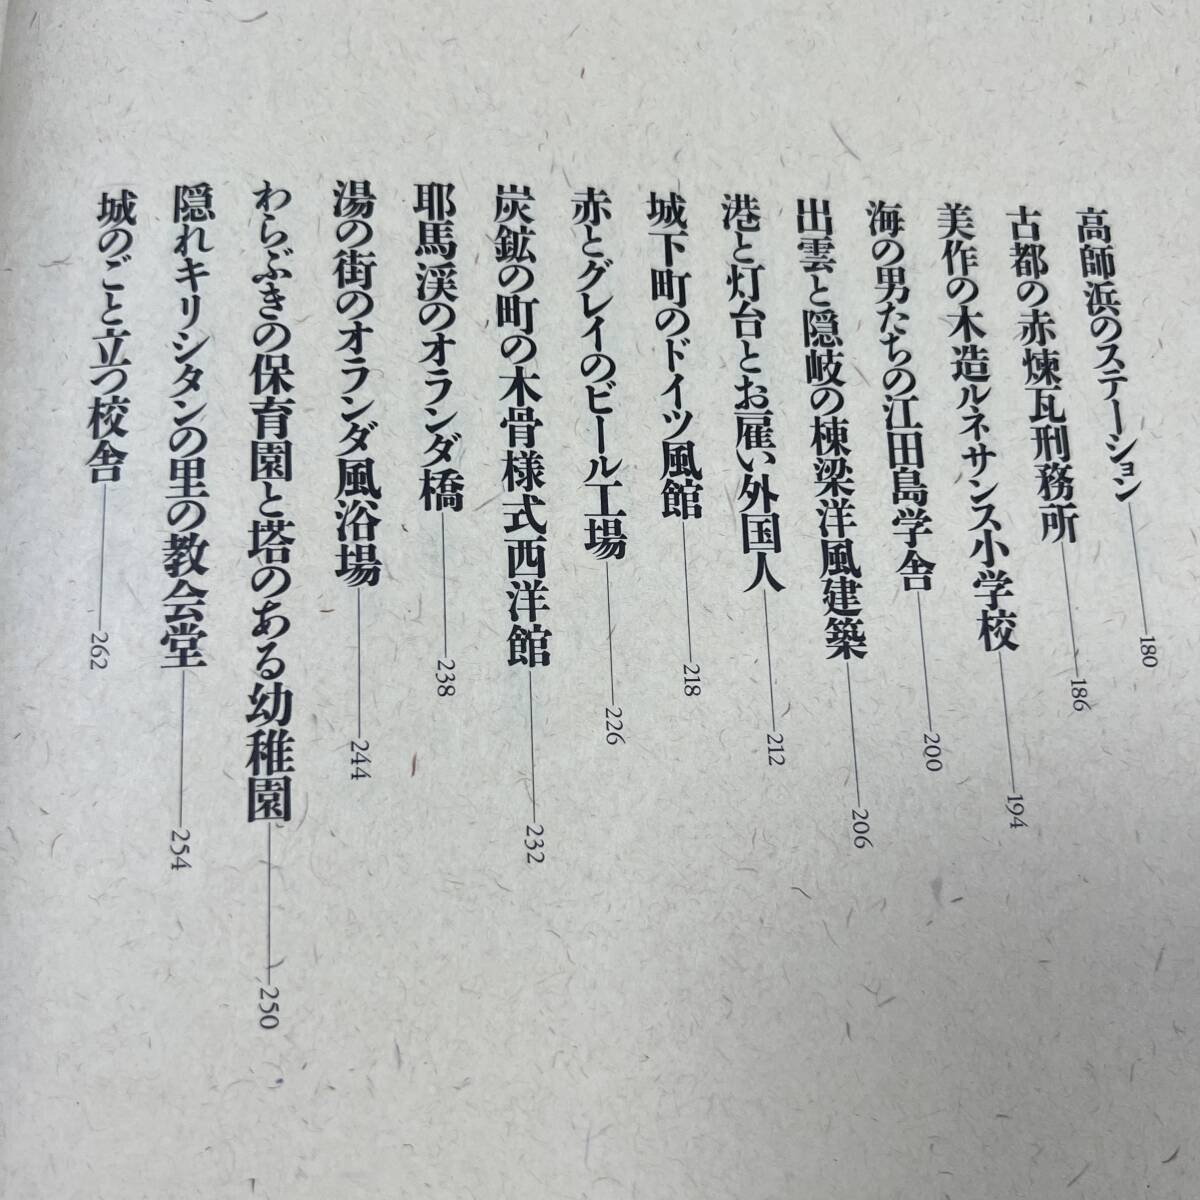 高師浜のステーション——180
古都の赤煉瓦刑務所——186
美作の木造ルネサンス小学校——194
海の男たちの江田島学舎——200
出雲と隠岐の棟梁洋風建築——206
港と灯台とお雇い外国人——212
城下町のドイツ風館——218
赤とグレイのビール工場——226
炭鉱の町の木骨様式西洋館——232
耶馬渓のオランダ橋——238
湯の街のオランダ風浴場——244
わらぶきの保育園と塔のある幼稚園——250
隠れキリシタンの里の教会堂——254
城のごと立つ校舎——262